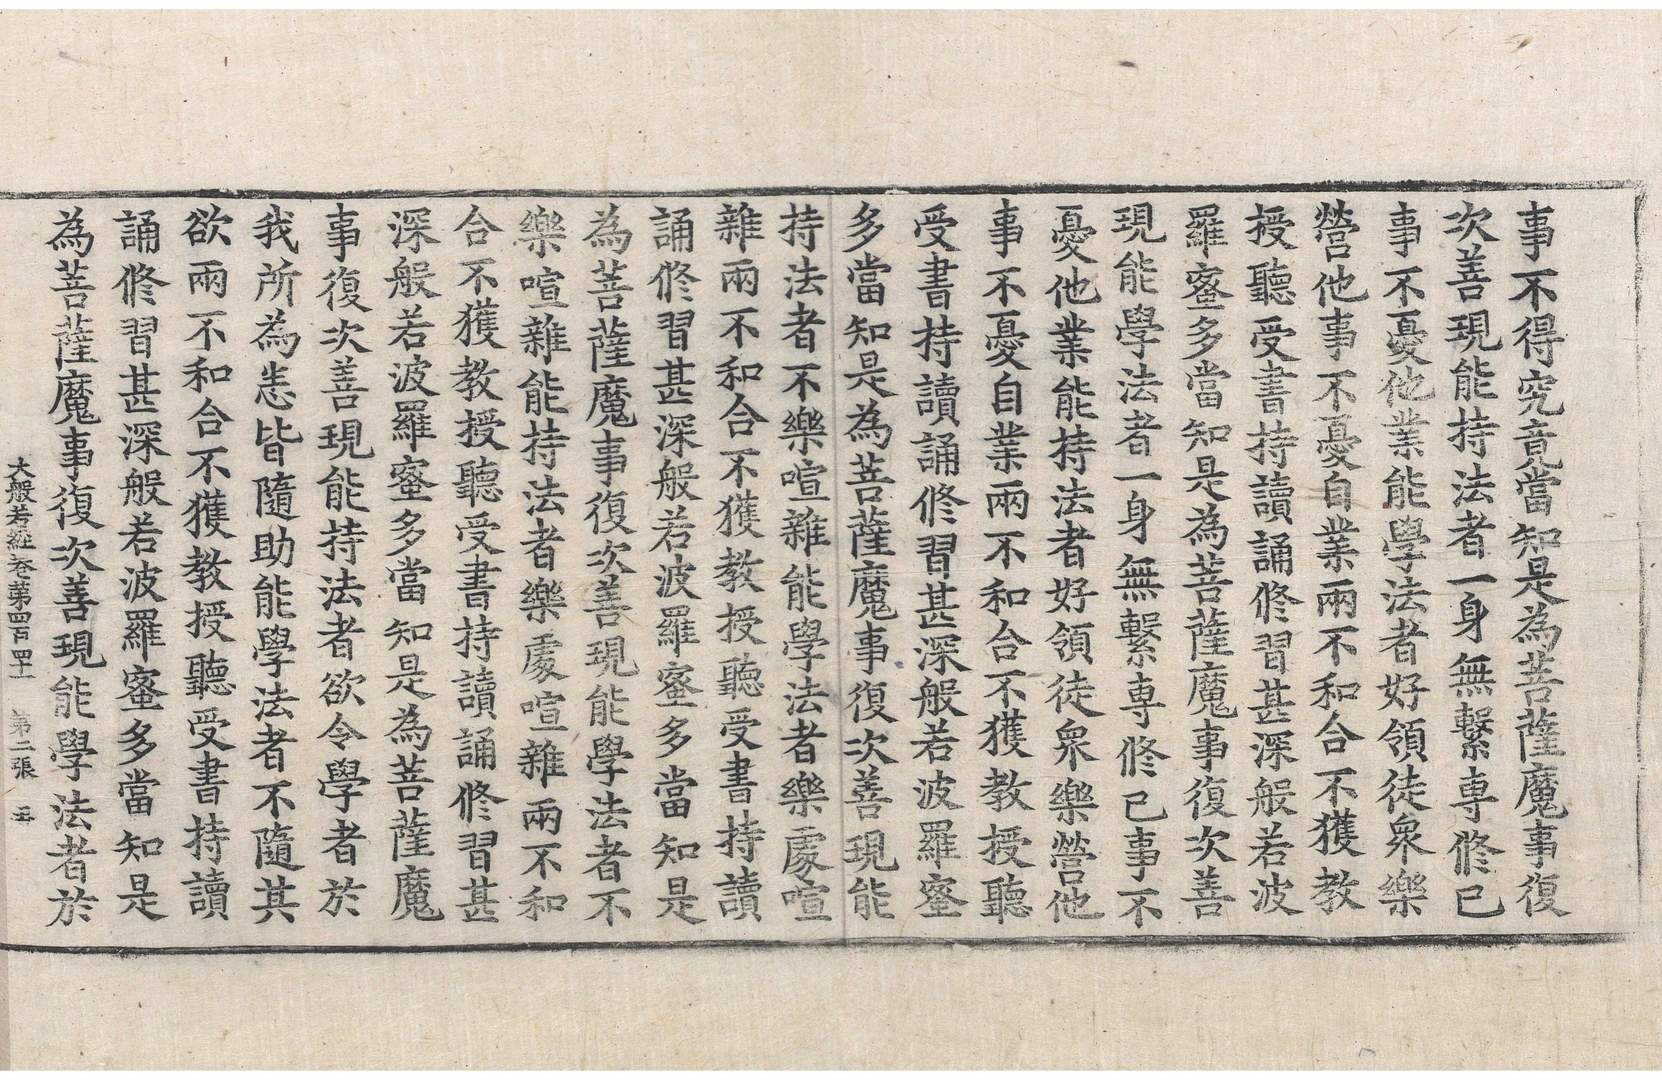 事不得究竟當知是為菩薩魔事復
次善現能持法者一身無繫專修己
事不憂他業能學法者好領徒衆樂
營他事不憂自業兩不和合不獲教
授聽受書持讀誦修習甚深般若波
羅蜜多當知是為菩薩魔事復次善
現能學法者一身無繫專修己事不
憂他業能持法者好領徒衆樂營他
事不憂自業兩不和合不獲教授聽
受書持讀誦修習甚深般若波羅蜜
多當知是為菩薩魔事復次善現能
持法者不樂喧雜能學法者樂處喧
雜兩不和合不獲教授聽受書持讀
誦修習甚深般若波羅蜜多當知是
為菩薩魔事復次善現能學法者不
樂喧雜能持法者樂處喧雜兩不和
合不獲教授聽受書持讀誦修習甚
深般若波羅蜜多當知是為菩薩魔
事復次善現能持法者欲令學者於
我所為恙皆隨助能學法者不隨其
欲兩不和合不獲教授聽受書持讀
誦修習甚深般若波羅蜜多當知是
為菩薩魔事復次善現能學法者於
大般若經卷第四百四十一 第二張